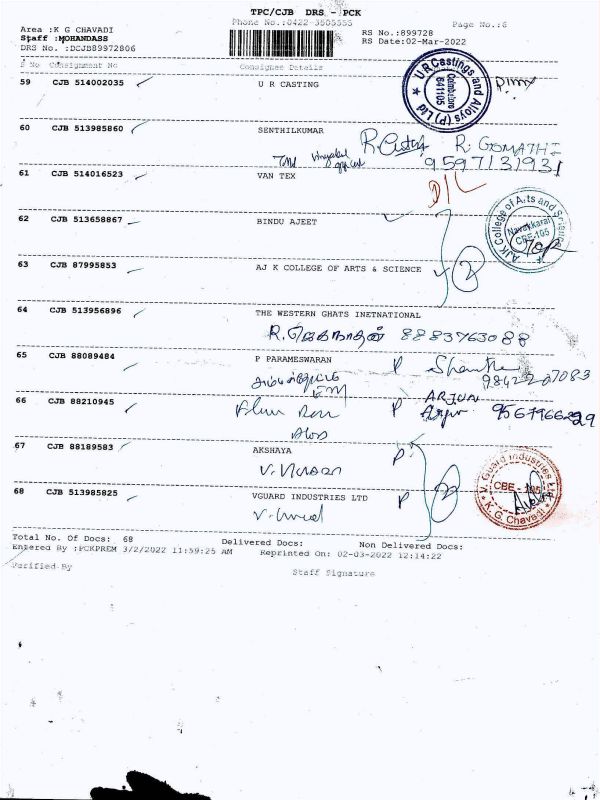 TPC/CJB DRS - PCK
Phone No.:0422-3505555
Page No.:6
Area :K G CHAVADI
Staff :MOHANDASS
DRS No. :DCJB89972806
RS No.:899728
RS Date:02-Mar-2022
S No Consignment No Consignee Details
59 CJB 514002035 U R CASTING
U R Castings and Alloys (P) Ltd
Coimbatore
641105
60 CJB 513985860 SENTHILKUMAR
R. GOMATHI
9597131931
61 CJB 514016523 VAN TEX
D/L
62 CJB 513658867 BINDU AJEET
AJK College of Arts and Science
Navakkarai
CBE-105
63 CJB 87995853 AJ K COLLEGE OF ARTS & SCIENCE
64 CJB 513956896 THE WESTERN GHATS INETNATIONAL
8883763088
65 CJB 88089484 P PARAMESWARAN
P
66 CJB 88210945
P ARJUN
67 CJB 88189583 AKSHAYA
P
68 CJB 513985825 VGUARD INDUSTRIES LTD
P
V. Guard Industries Ltd
CBE - 105
K.G Chavadi
Total No. Of Docs: 68 Delivered Docs: Non Delivered Docs:
Entered By :PCKPREM 3/2/2022 11:59:25 AM Reprinted On: 02-03-2022 12:14:22
Verified By Staff Signature